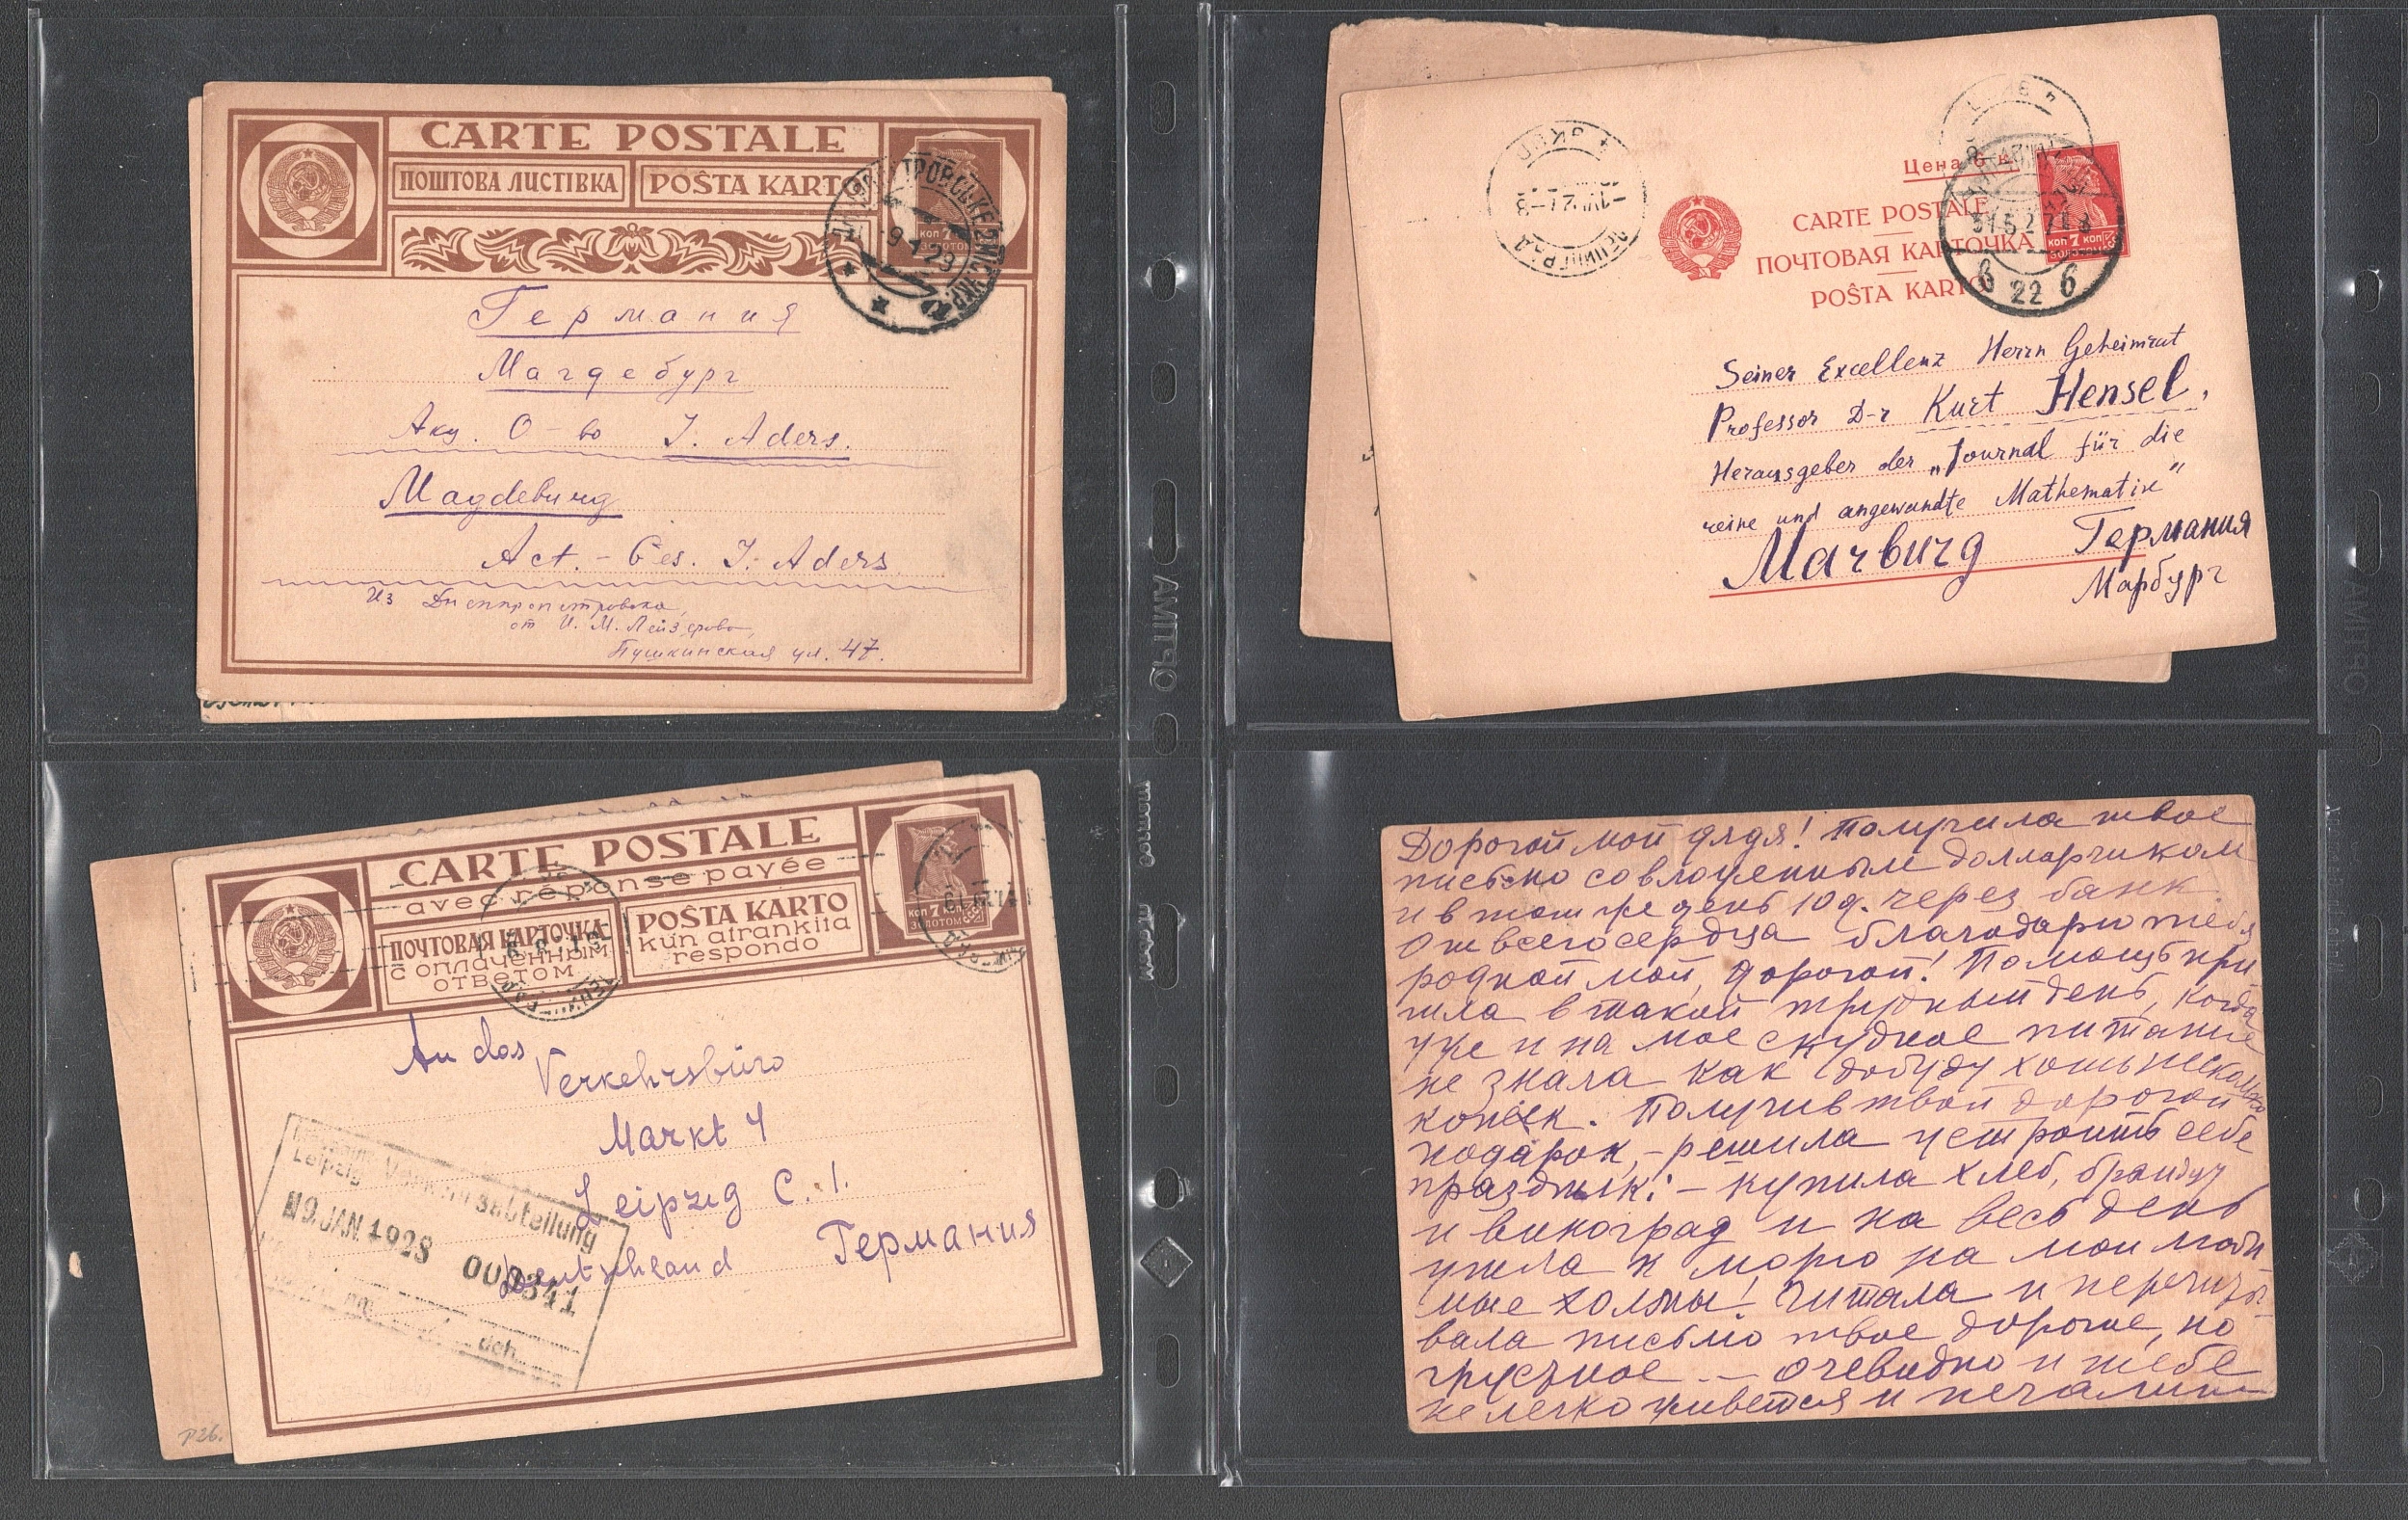 CARTE POSTALE
ПОШТОВА ЛИСТІВКА
POŜTA KARTO
КОП 7
ЗОЛОТОМ
9 1 29
Германия
Магдебург
Акц. О-во J. Aders.
Magdeburg
Act. - Ges. J. Aders
Из Днепропетровска,
от И. М.
Пушкинская ул. 47.
Цена
CARTE POSTALE
ПОЧТОВАЯ КАРТОЧКА
POŜTA KARTO
КОП 7 КОП
31 5 27
6 22 6
Seiner Excellenz Herrn Geheimrat
Professor D-r Kurt Hensel,
Herausgeber der „Journal für die
reine und angewandte Mathematik"
Marburg Германия
Марбург
CARTE POSTALE
avec réponse payée
ПОЧТОВАЯ КАРТОЧКА
с оплаченным
ответом
POŜTA KARTO
kun afrankita
respondo
КОП 7 КОП
ЗОЛОТОМ
An das
Verkehrsbüro
Markt 4
Leipzig C. 1.
Deutschland Германия
Leipzig
9. JAN 1928
p26.
Дорогой мой дядя! Получила твое
письмо со вложенным долларчиком
и в тот же день 10 д. через банк
От всего сердца благодарю тебя
родной мой, дорогой! Помощь при
шла в такой трудный день, когда
уже и на мое скудное питание
не знала как добуду хоть несколько
копеек. Получив твой дорогой
подарок, - решила устроить себе
праздник: - купила хлеб,
и виноград и на весь день
ушла к морю на мои люби
мые холмы! Читала и перечиты-
вала письмо твое дорогое, но
грустное -- очевидно и тебе
не легко живется и
OPTIMA
OPTIMA